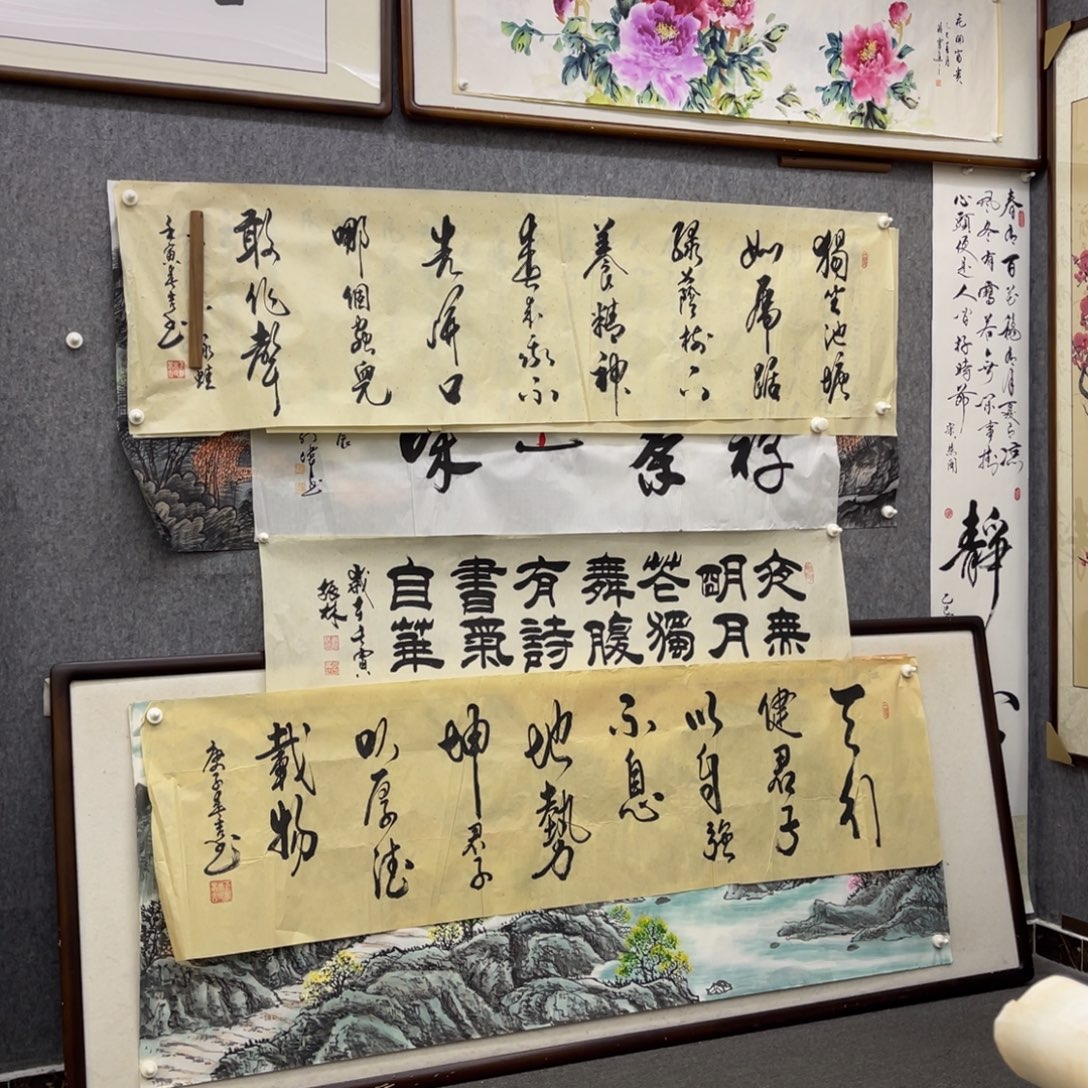 花開富貴
獨坐池塘
如虎踞
綠蔭樹下
養精神
春來我不
先開口
哪個蟲兒
敢作聲
詠蛙
壬寅年吉書
夜無
明月
花獨
舞腹
有詩
書氣
自華
振林
天行
健君子
以自強
不息
地勢
坤君子
以厚德
載物
庚子年吉書
春有百花秋有月夏有涼
風冬有雪若無閑事掛
心頭便是人間好時節
靜